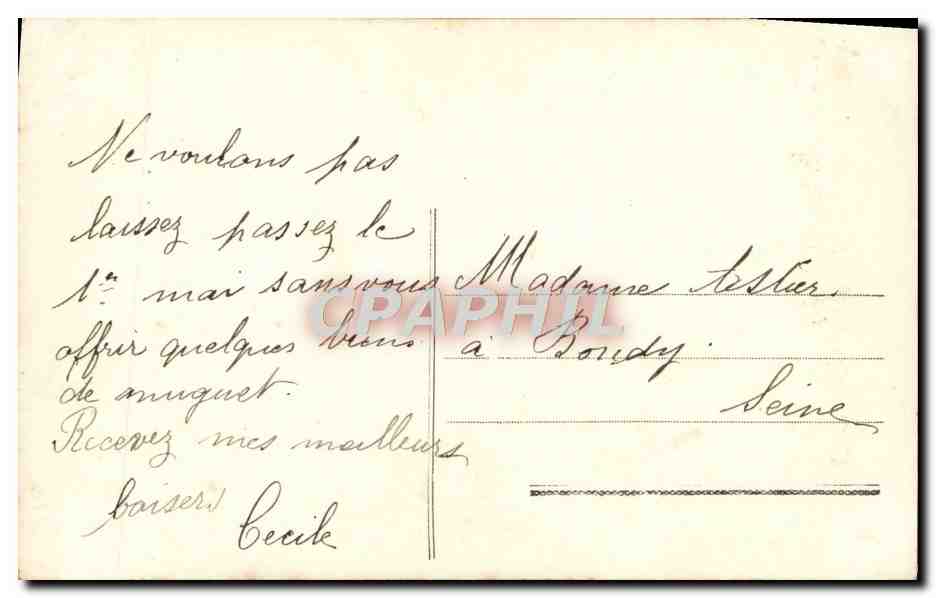 Ne voulons pas
laissez passez le
1er mai sans vous
offrir quelques biens
de muguet.
Recevez mes meilleurs
baisers
Cecile
Madame Astier
à Bondy.
Seine
CPAPHIL